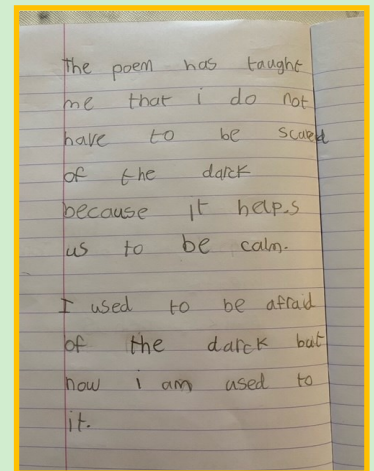 The poem has taught
me that i do not
have to be scared
of the darck
because it helps
us to be calm.
I used to be afraid
of the darck but
now i am used to
it.